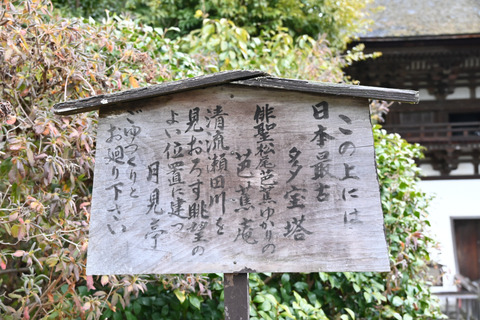 この上には
日本最古
多宝塔
俳聖松尾芭蕉ゆかりの
芭蕉庵
清流瀬田川を
見おろす眺望の
よい位置に建つ
月見亭
ごゆっくりと
お廻り下さい